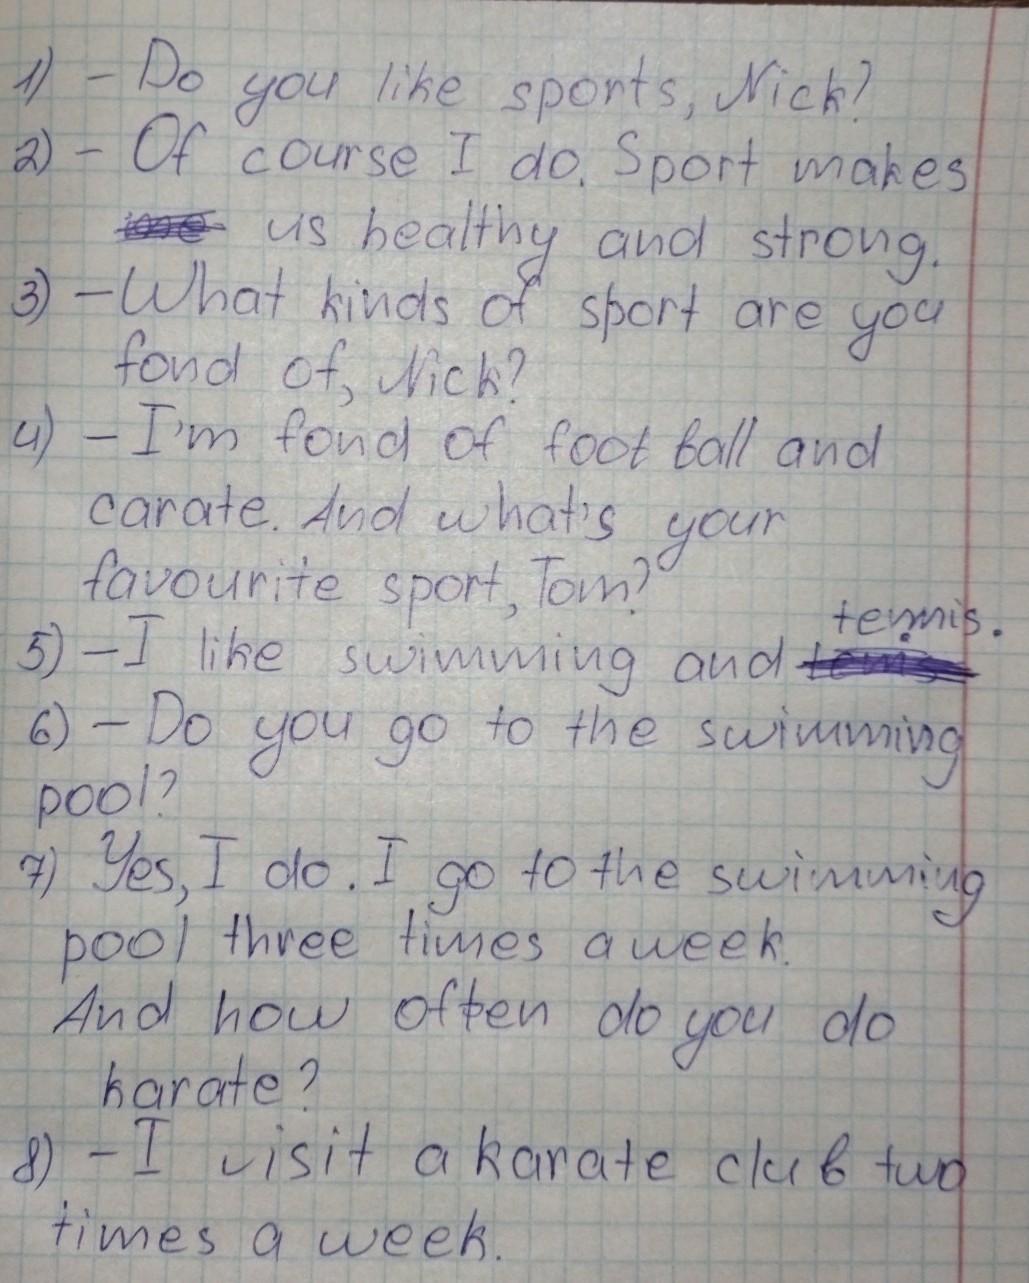 1) - Do you like sports, Nick?
2) - Of course I do. Sport makes
us healthy and strong.
3) - What kinds of sport are you
fond of, Nick?
4) - I'm fond of foot ball and
carate. And what's your
favourite sport, Tom?
tennis.
5) - I like swimming and
6) - Do you go to the swimming
pool?
7) Yes, I do. I go to the swimming
pool three times a week.
And how often do you do
karate?
8) - I visit a karate club two
times a week.